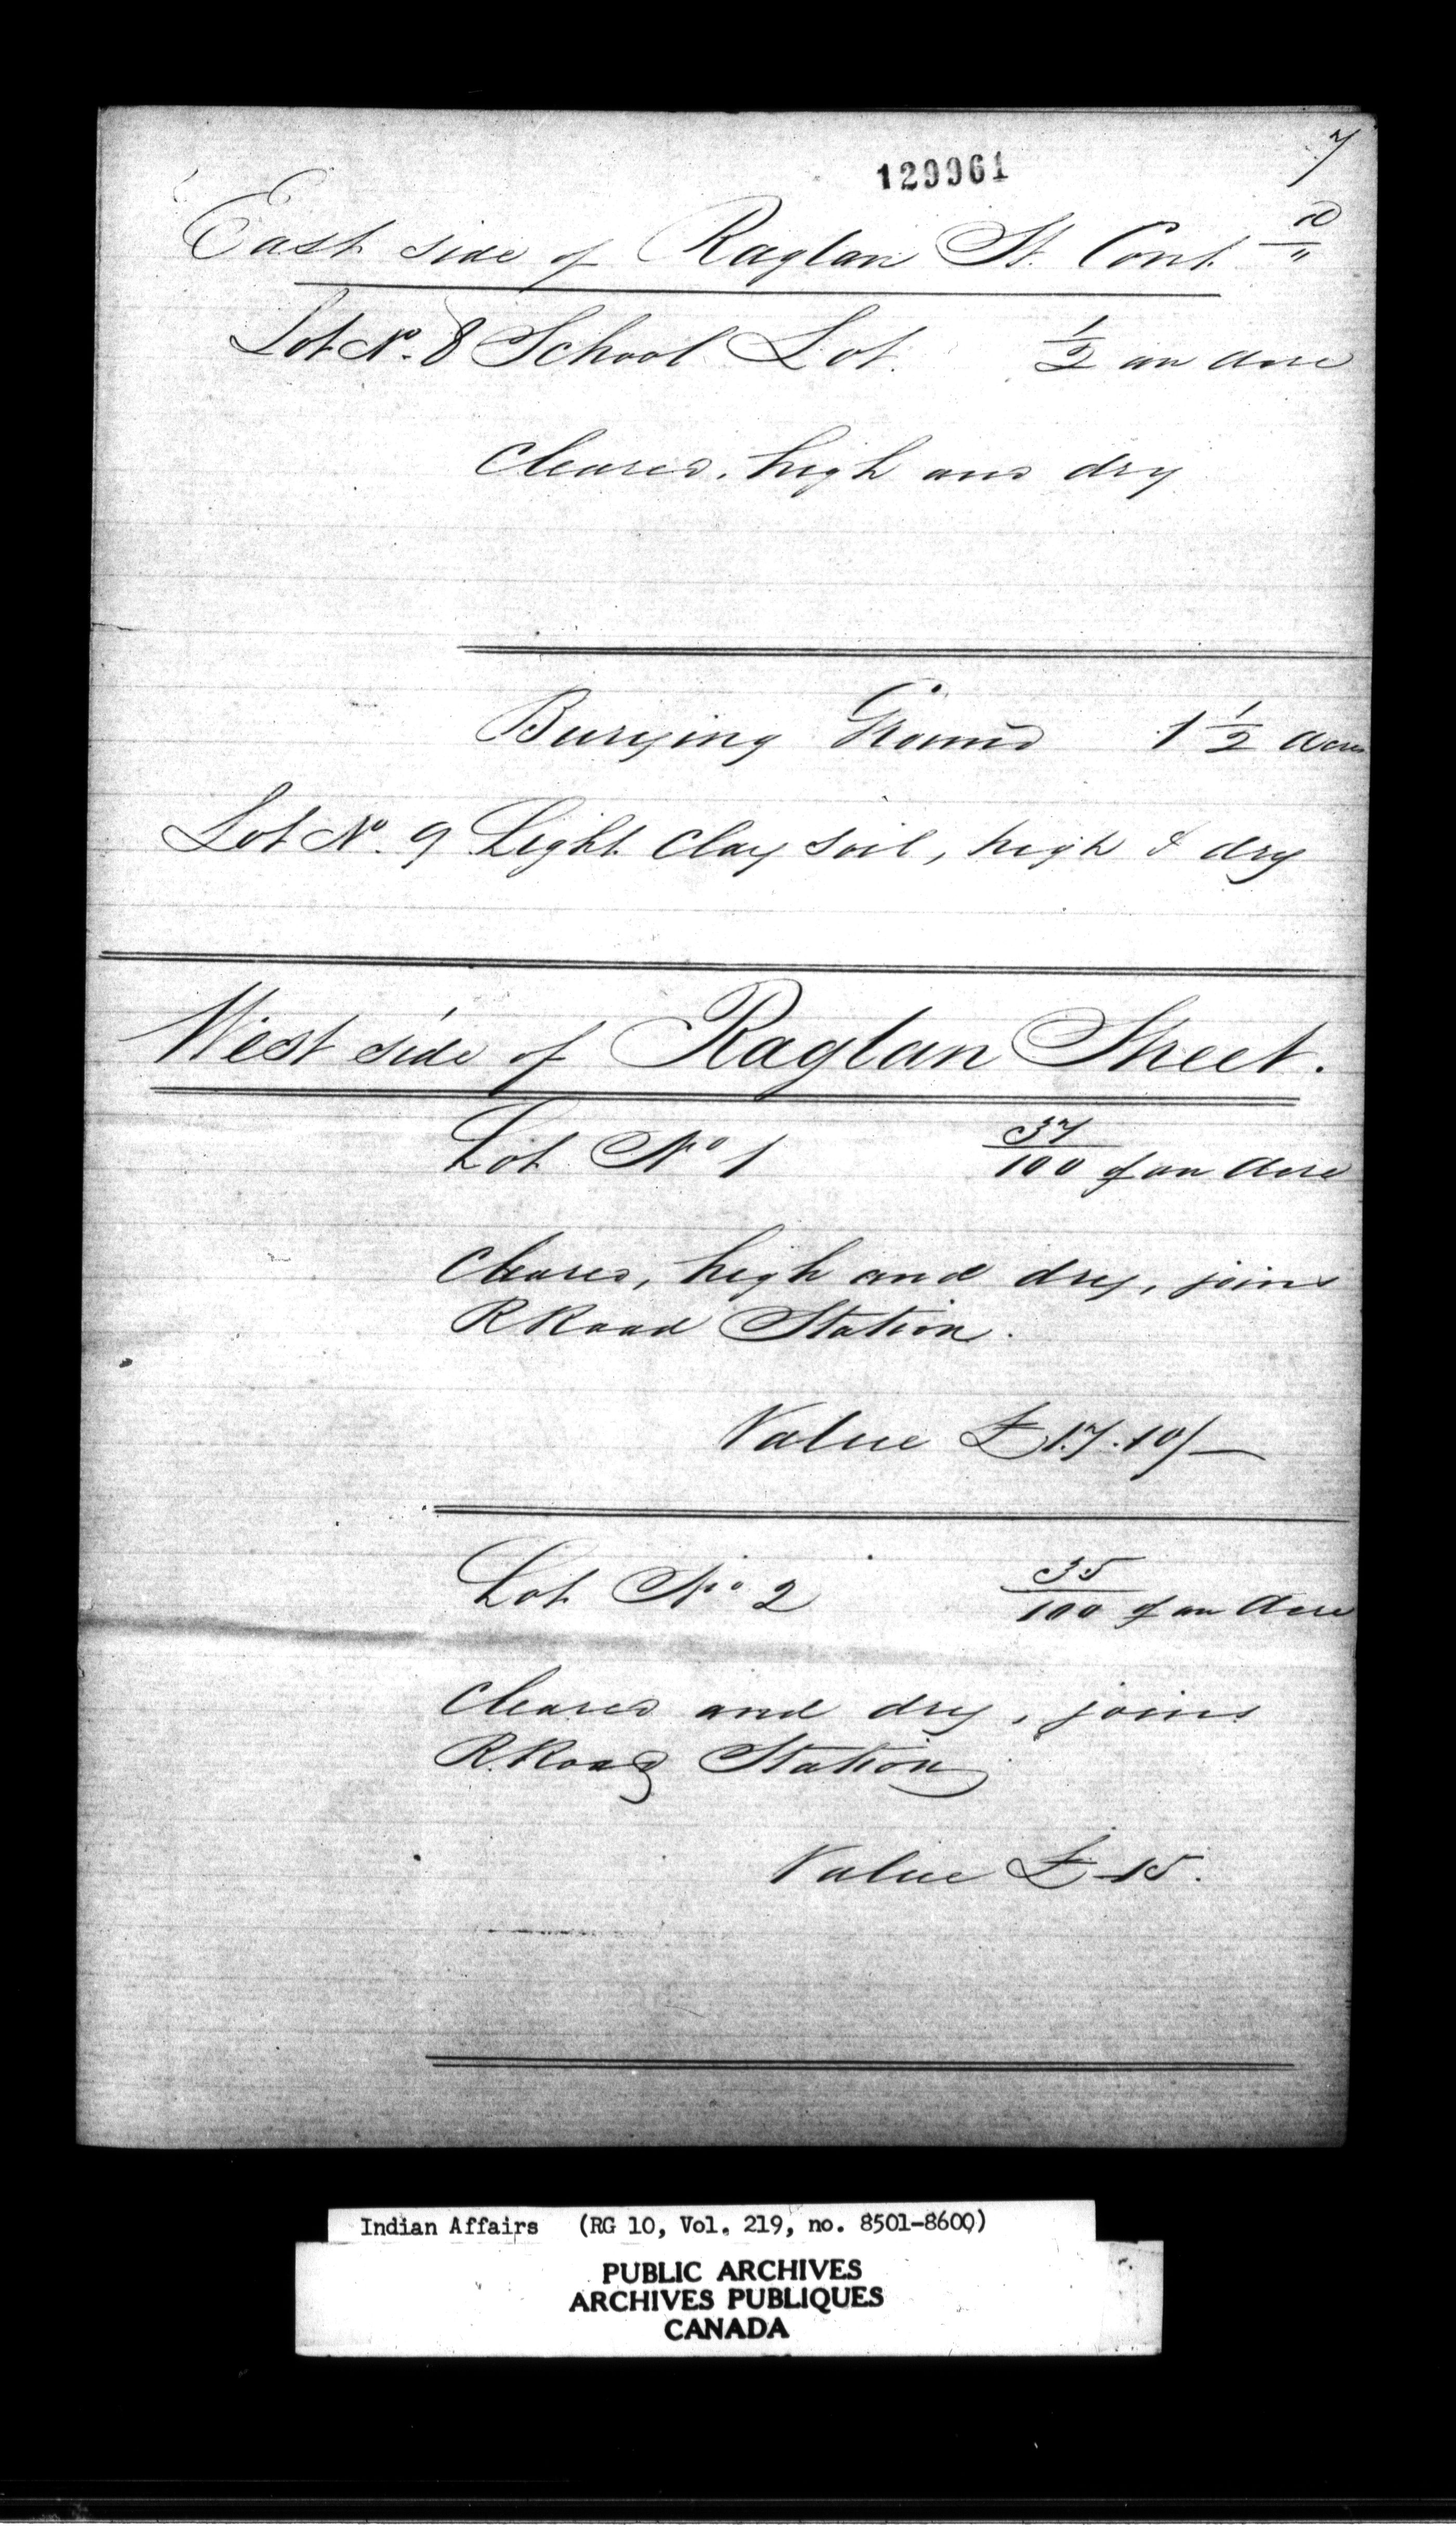 7
129961
East side of Raglan St. Cont d
Lot No. 8 School Lot. 1/2 an Acre
Cleared, high and dry
Burying Ground 1 1/2 Acres
Lot No. 9 Light Clay soil, high & dry
West side of Raglan Street.
Lot No 1 37/100 of an Acre
Cleared, high and dry, joins
R Road Station.
Value £17.10/—
Lot No 2 35/100 of an Acre
Cleared and dry, joins
R. Road Station
Value £15.
Indian Affairs (RG 10, Vol. 219, no. 8501-8600)
PUBLIC ARCHIVES
ARCHIVES PUBLIQUES
CANADA